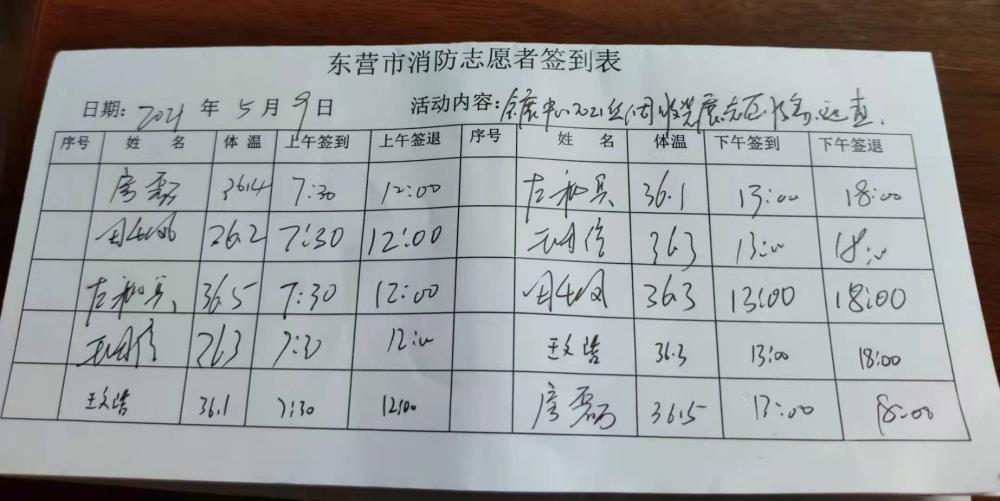 东营市消防志愿者签到表
日期: 2021 年 5 月 9 日 活动内容: 会展中心2021
序号 姓 名 体 温 上午签到 上午签退 序号 姓 名 体温 下午签到 下午签退
房磊 36.4 7:30 12:00 左和兵 36.1 13:00 18:00
26.2 7:30 12:00 363 13:00 18:00
左和兵 36.5 7:30 12:00 36.3 13:00 18:00
363 7:30 12:00 王文浩 36.3 13:00 18:00
王文浩 36.1 7:30 12:00 房磊 36.5 13:00 18:00